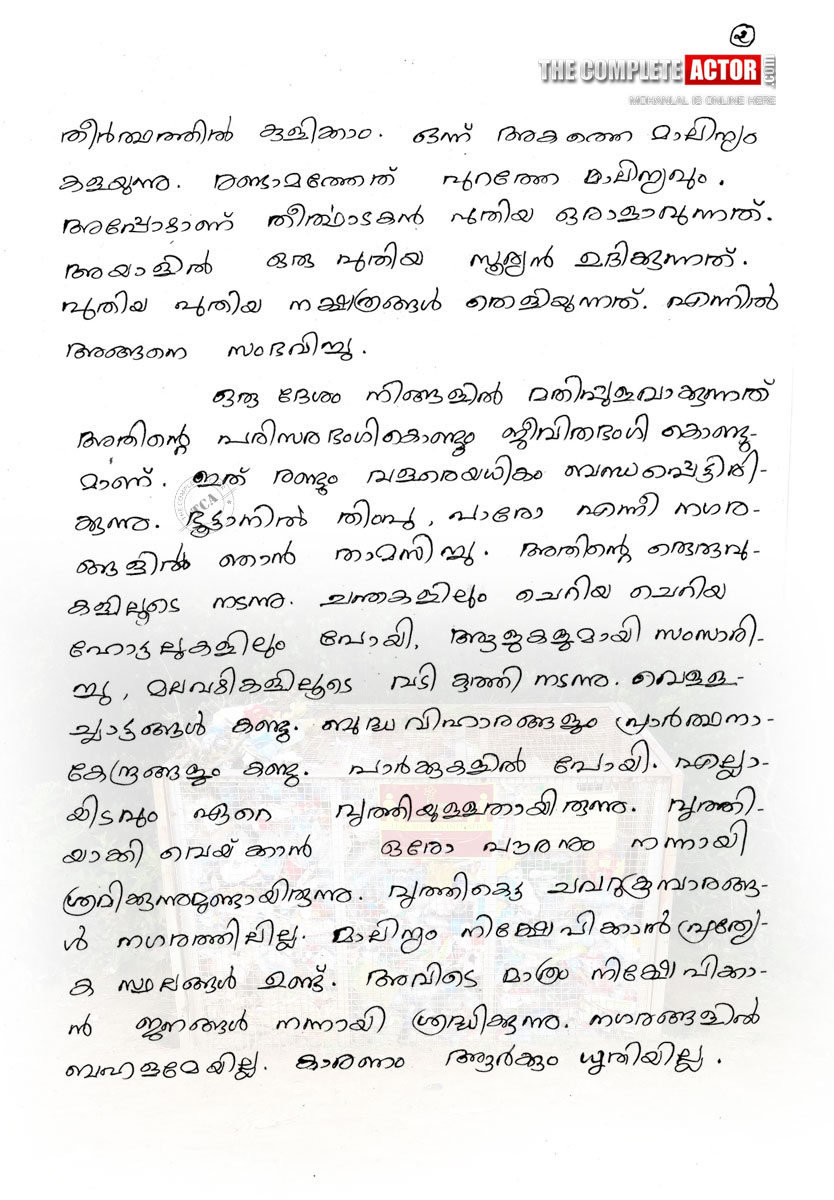 ൨
THE COMPLETE ACTOR .COM
MOHANLAL IS ONLINE HERE
തീർത്ഥത്തിൽ കുളിക്കാം. ഒന്ന് അകത്തെ മാലിന്യം
കളയുന്നു. രണ്ടാമത്തേത് പുറത്തേ മാലിന്യവും.
അപ്പോഴാണ് തീർത്ഥാടകൻ പുതിയ ഒരാളാവുന്നത്.
അയാളിൽ ഒരു പുതിയ സൂര്യൻ ഉദിക്കുന്നത്.
പുതിയ പുതിയ നക്ഷത്രങ്ങൾ തെളിയുന്നത്. എന്നിൽ
അങ്ങനെ സംഭവിച്ചു.
ഒരു ദേശം നിങ്ങളിൽ മതിപ്പുളവാക്കുന്നത്
അതിന്റെ പരിസരഭംഗികൊണ്ടും ജീവിതഭംഗി കൊണ്ടു-
മാണ്. ഇത് രണ്ടും വളരെയധികം ബന്ധപ്പെട്ടിരി-
ക്കുന്നു. ഭൂട്ടാനിൽ തിംബു, പാരോ എന്നീ നഗര-
ങ്ങളിൽ ഞാൻ താമസിച്ചു. അതിന്റെ തെരുവു-
കളിലൂടെ നടന്നു. ചന്തകളിലും ചെറിയ ചെറിയ
ഹോട്ടലുകളിലും പോയി, ആളുകളുമായി സംസാരി-
ച്ചു, മലവഴികളിലൂടെ വടി കുത്തി നടന്നു. വെള്ള-
ച്ചാട്ടങ്ങൾ കണ്ടു. ബുദ്ധവിഹാരങ്ങളും പ്രാർത്ഥനാ-
കേന്ദ്രങ്ങളും കണ്ടു. പാർക്കുകളിൽ പോയി. എല്ലാ-
യിടവും ഏറെ വൃത്തിയുള്ളതായിരുന്നു. വൃത്തി-
യാക്കി വെയ്ക്കാൻ ഒരോ പൗരനും നന്നായി
ശ്രമിക്കുന്നുമുണ്ടായിരുന്നു. വൃത്തികെട്ട ചവറുകൂമ്പാരങ്ങ-
ൾ നഗരത്തിലില്ല. മാലിന്യം നിക്ഷേപിക്കാൻ പ്രത്യേ-
ക സ്ഥലങ്ങൾ ഉണ്ട്. അവിടെ മാത്രം നിക്ഷേപിക്കാ-
ൻ ജനങ്ങൾ നന്നായി ശ്രദ്ധിക്കുന്നു. നഗരങ്ങളിൽ
ബഹളമേയില്ല. കാരണം ആർക്കും ധൃതിയില്ല.
TCA